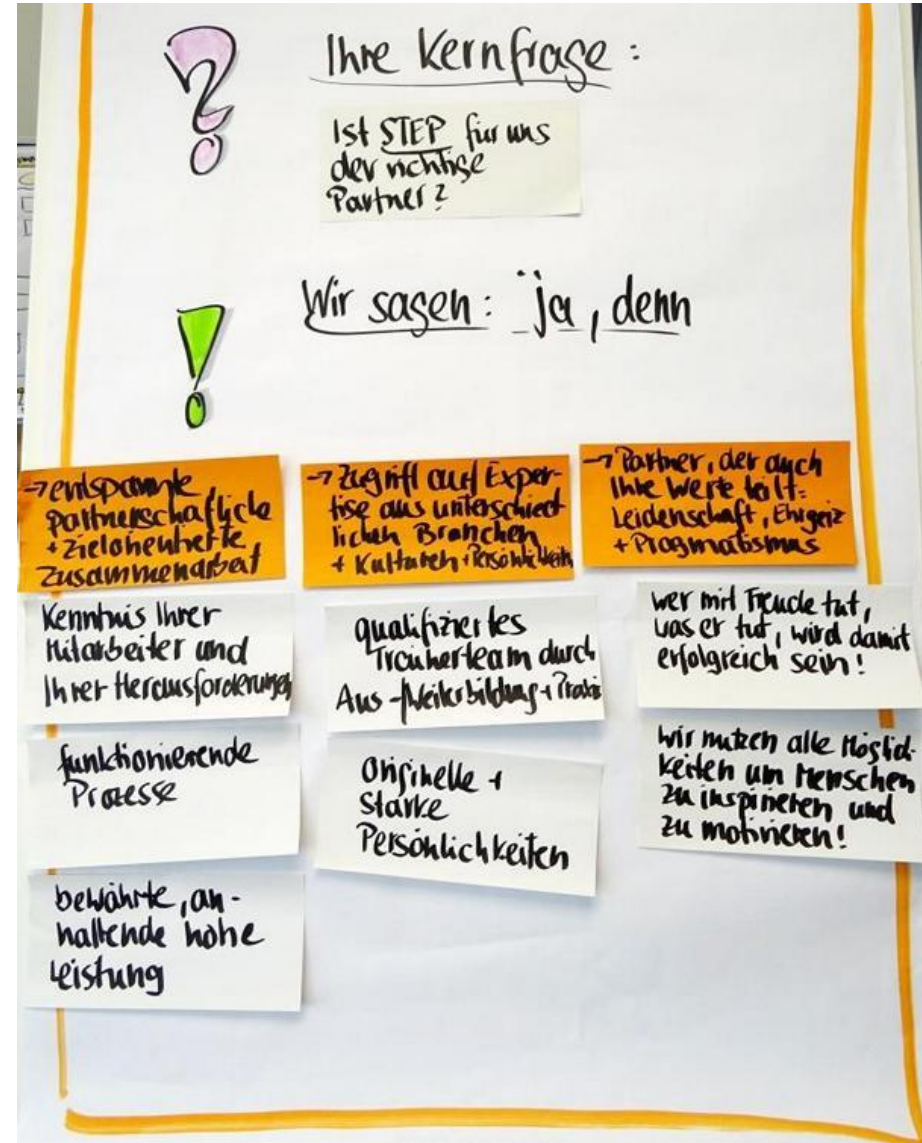 Ihre Kernfrage:
Ist STEP für uns
der richtige
Partner?
Wir sagen: ja, denn
→ entspannte,
partnerschaftliche
+ zielorientierte
Zusammenarbeit
Kenntnis Ihrer
Mitarbeiter und
Ihrer Herausforderungen
funktionierende
Prozesse
bewährte, an-
haltende hohe
Leistung
→ Zugriff auf Exper-
tise aus unterschied
lichen Branchen
+ Kulturen + Persönlichkeiten
qualifiziertes
Trainerteam durch
Aus-/Weiterbildung + Praxis
Originelle +
starke
Persönlichkeiten
→ Partner, der auch
Ihre Werte teilt:
Leidenschaft, Ehrgeiz
+ Pragmatismus
wer mit Freude tut,
was er tut, wird damit
erfolgreich sein!
wir nutzen alle Möglich
keiten um Menschen
zu inspirieren und
zu motivieren!